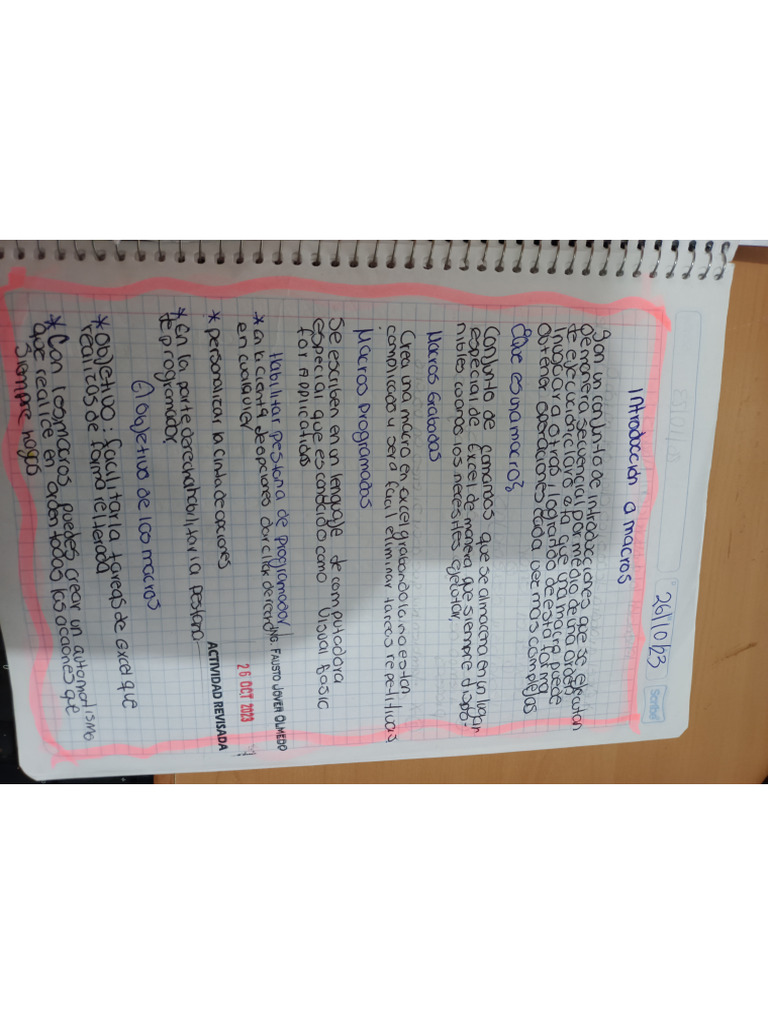 26/10/23
scribe
Introducción a macros
Son un conjunto de introducciones que se ejecutan
de manera secuencial por medio de una orden
de ejecución claro esta que una macro puede
invocar a otras, logrando de esta forma
obtener operaciones cada vez mas complejas
¿Que es una macro?
Conjunto de comamos que se almacena en un lugar
especial de Excel de manera que siempre dispo-
nibles cuando los necesites ejecutar.
Macros Grabadas
Crea una macro en excel grabandola no es tan
complicado y sera facil eliminar tareas repetitivas
Macros programados
Se escriben en un lenguaje de computadora
especial que es conocido como Visual Basic
for applications
Habilitar pestana de programador
* en la cienta de opciones dar click derecho
en cualquier
* personalizar la cinta de opciones
* En la parte derecha habilitar la pestana
de programador
ING. FAUSTO JOVER OLMEDO
26 OCT 2023
ACTIVIDAD REVISADA
Objetivo de los macros
* Objetivo: facilitar la tareas de Excel que
realizas de forma reiterada
* Con los macros, puedes crear un automatismo
que realice en orden todas las acciones que
siempre hago